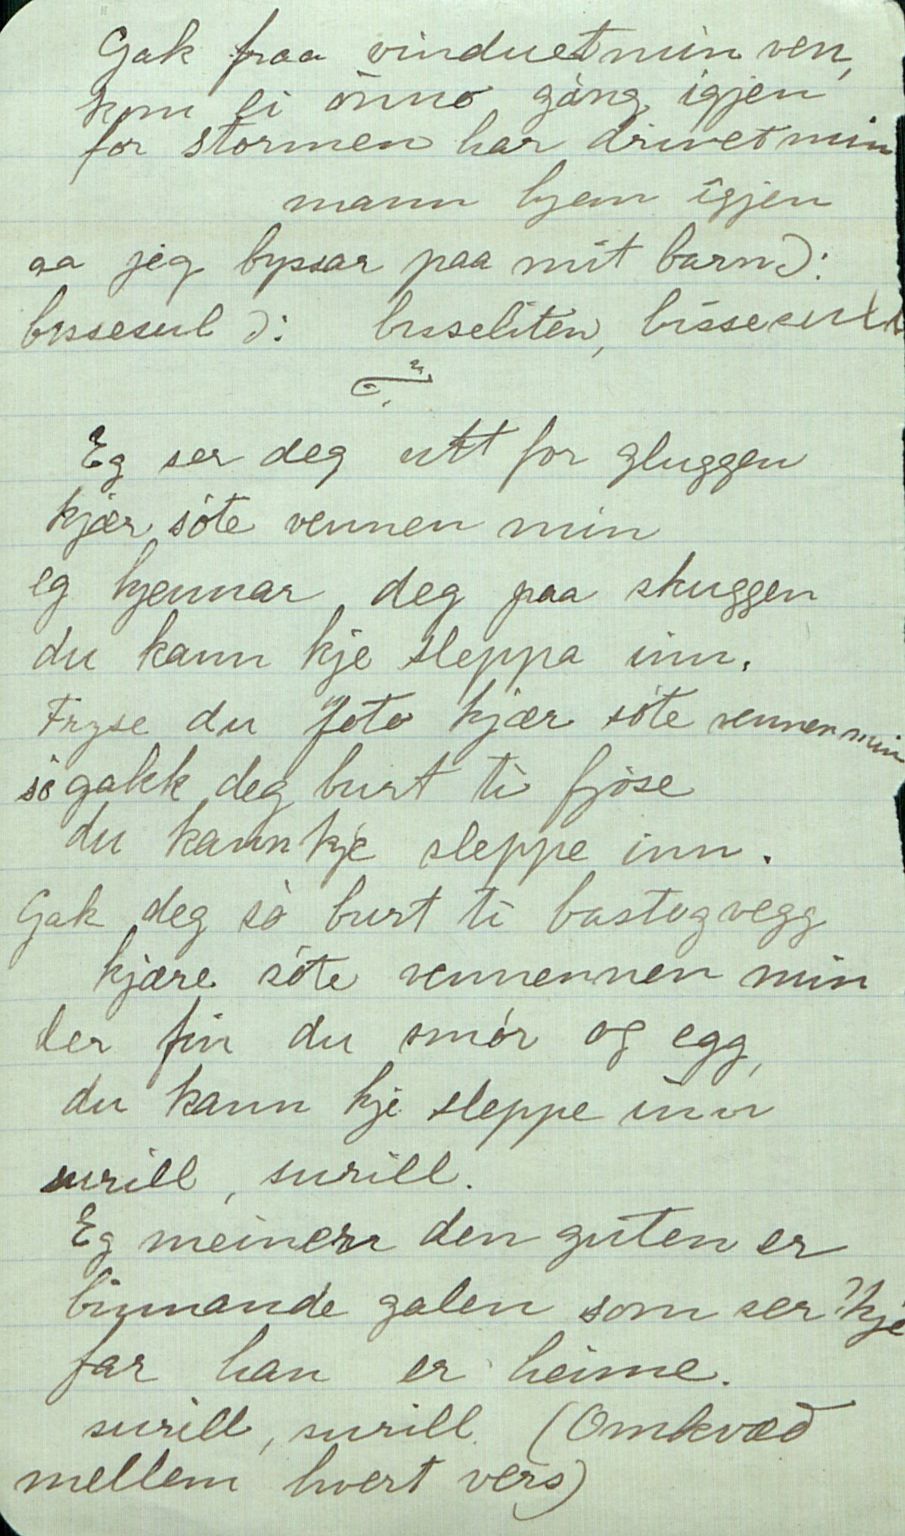 Gak fraa vinduet min ven,
kom ei önno gång igjen
for stormen har drivet min
mann hjem igjen
aa jeg byssar paa mit barn ɔ:
bissesul ɔ: bisseliten, bissesull
Eg ser deg utt for gluggen
kjær söte vennen min
eg kjennar deg paa skuggen
du kann kje sleppa inn.
Fryse du foto kjær söte vennen min
sö gakk deg burt ti fjöse
du kann kje sleppe inn.
Gak deg sö burt ti bastogvegg
kjære söte vennennen min
der fin du smör og egg,
du kann kje sleppe inn
surill, surill.
Eg meiner den guten er
binnande galen som ser? kje
far han er heime.
surill, surill. (Omkvæd
mellem hvert vers)